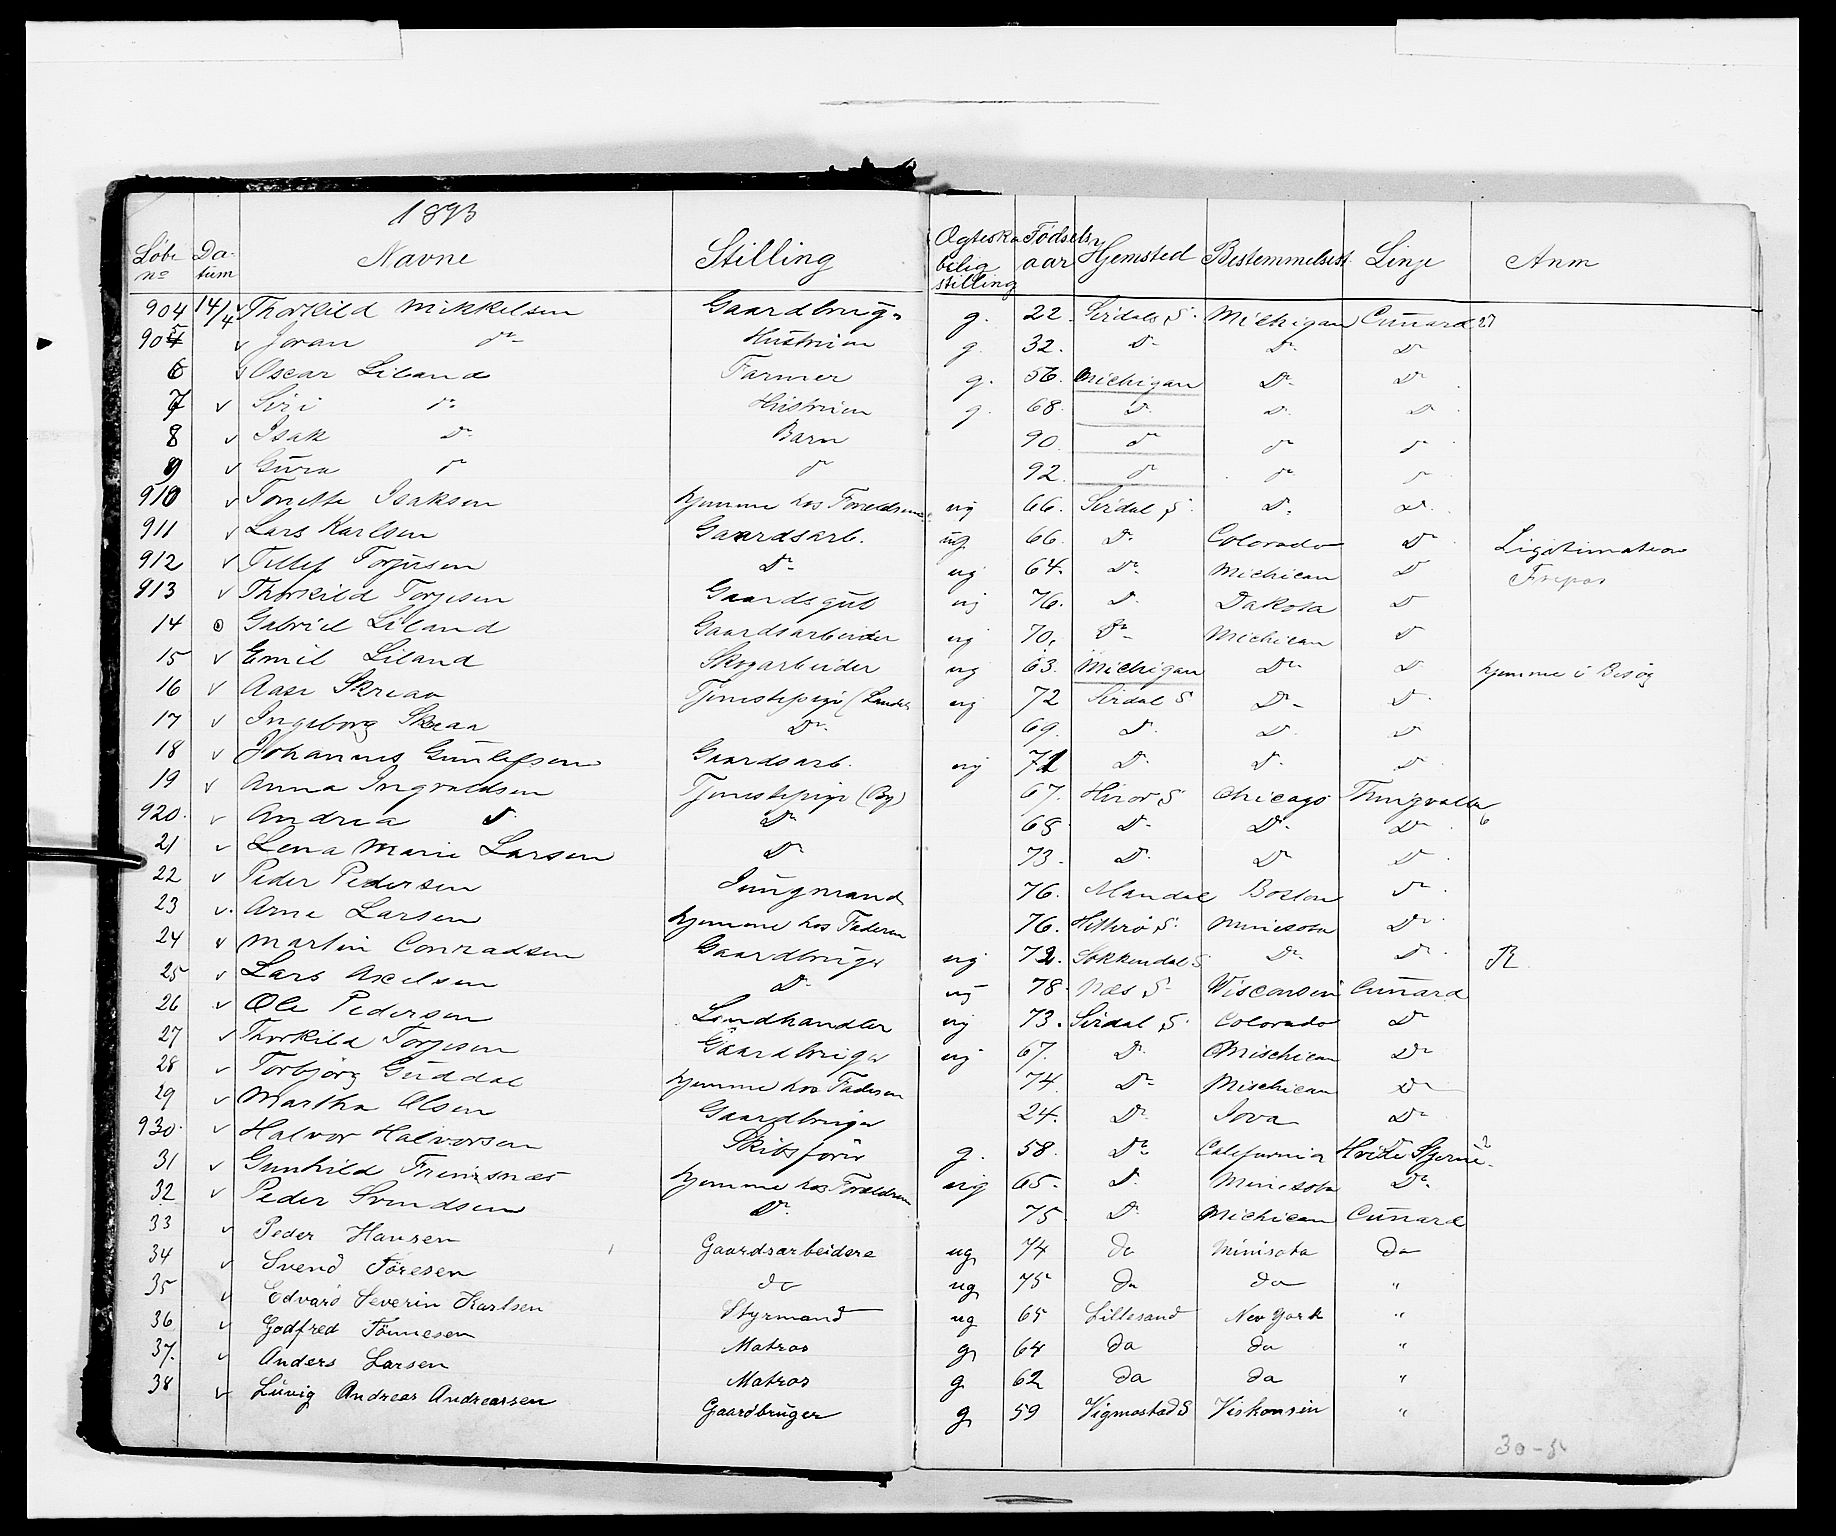 1893
Løbe no Da-tum Navne Stilling Ægteskabelig stilling Fødsels aar Hjemsted Bestemmelsest. Linje Anm
904 14/4 v Thorkild Mikkelsen Gaardbrug. g. 22. Sirdals S. Michigan Cunard 27
905 v Joran do Hustruen g. 32. Do Do Do
6 v Oscar Liland Farmer g. 56. Michigan Do Do
7 v Siri do Hustruen g. 68 Do Do Do
8 v Isak Do Barn 90 do do do
9 v Gura do do 92. do do do
910 v Tonette Isaksen hjemme hos Foreldrene ug 66. Sirdal S. Do Do
911 v Lars Karlsen Gaardsarb. ug 66. Do Colorado Do Legitimation
912 v Tellef Torjusen Do ug 64. Do Michican Do Frepas
913 v Thorkild Torjesen Gaardsgut ug 76. Do Dakota Do
14 Gabriel Liland Gaardsarbeider ug 70. Do Michican Do
15 v Emil Liland Skogarbeider ug 63. Michigan Do Do hjemme i Besøg
16 v Aase Skreaa Tjenestepige (Landet ug 72 Sirdal S Do Do
17 v Ingeborg Skreaa Do 69. Do Do Do
18 v Johannes Gunlefsen Gaardsarb. ug 71 Do Do Do
19 v Anna Ingvaldsen Tjenestepige (By) 67. S Chicago Thingvalla 6
920. v Andrea Do Do 68 Do Do Do
21 v Lena Marie Larsen Do 73. Do Do Do
22 v Peder Pedersen Jungmand 76. Mandal Boston Do
23 v. Arne Larsen hjemme hos Faderen 76. Hitterø S. Minesota Do
24 v Martin Conradsen Gaardbruger ug 72. Sokkendal S Do Do R
25 v Lars Axelsen Do ug 78. Næs S. Wisconsin Cunard
26 v Ole Pedersen Landhandler ug 73. Sirdal S. Colorado Do
27 v Thorkild Torjesen Gaardbruger ug 67. Do Mischican Do
28 v Torbjørg Guddal hjemme hos Faderen 74 Do Mischican Do
29 v Martha Olsen Gaardbruger 24. Do Iova Do
930. v Halvor Halvorsen Skibsfører g. 58. Do California Hvite Stjerne.
31 v Gunhild hjemme hos Foreldrene ug 65. Do Minesota Do
32 v Peder Svendsen Do 75 Do Michican Cunard
33 v Peder Hansen Gaardsarbeidere ug 74 do Minisota do
34 v Svend Töresen do ug 75 do do "
35 v Edvard Severin Karlsen Styrmand ug 65 Lillesand New York "
36 v Godfred Tönnesen Matros g 64 do do "
37. v Anders Larsen Matros g 62 do do "
38 v Luvig Andreas Andreassen Gaardbruger g 59 Vigmostad S Viskonsin "
30-5